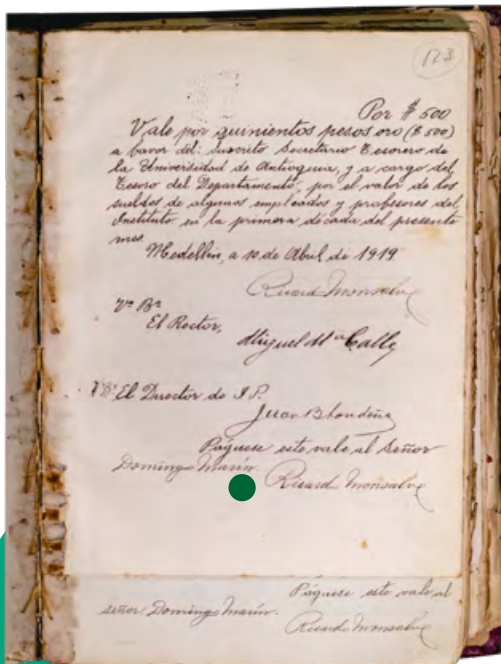 123
Por $ 500
Vale por quinientos pesos oro ($ 500)
a favor del suscrito Secretario Tesorero de
la Universidad de Antioquia, y a cargo del
Tesoro del Departamento, por el valor de los
sueldos de algunos empleados y profesores del
Instituto en la primera década del presente
mes.
Medellín, a 10 de Abril de 1919
Ricard Monsalve
Vº Bº
El Rector,
Miguel Mª Calle
Vº Bº El Director de I P.
Juan B Londoño
Páguese este vale al Señor
Domingo Marín.
Ricard Monsalve
Páguese este vale al
señor Domingo Marín.
Ricardo Monsalve